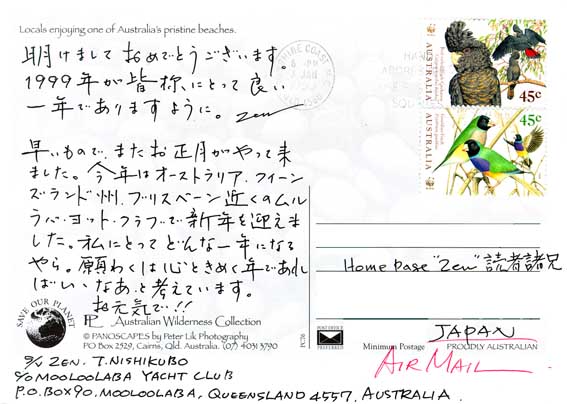 Locals enjoying one of Australia's pristine beaches.
明けましておめでとうございます。
1999年が皆様にとって良い
一年でありますように。 Zen
早いもので、またお正月がやって来
ました。今年はオーストラリア、クイーン
ズランド州、ブリスベーン近くのムル
ラバ・ヨット・クラブで新年を迎えま
した。私にとってどんな一年になる
やら。願わくは心ときめく年であれ
ばいいなあと考えています。
お元気で!!
SAVE OUR PLANET
PL Australian Wilderness Collection
© PANOSCAPES by Peter Lik Photography
PO Box 2529, Cairns, Qld. Australia. (07) 4031 3790
S/Y ZEN. T.NISHIKUBO
c/o MOOLOOLABA YACHT CLUB
P.O.BOX 90. MOOLOOLABA, QUEENSLAND 4557, AUSTRALIA.
AUSTRALIA
45c
45c
AUSTRALIA
Home Page "Zen" 読者諸兄
JAPAN
POST OFFICE
PREFERRED
Minimum Postage
PROUDLY AUSTRALIAN
AIR MAIL